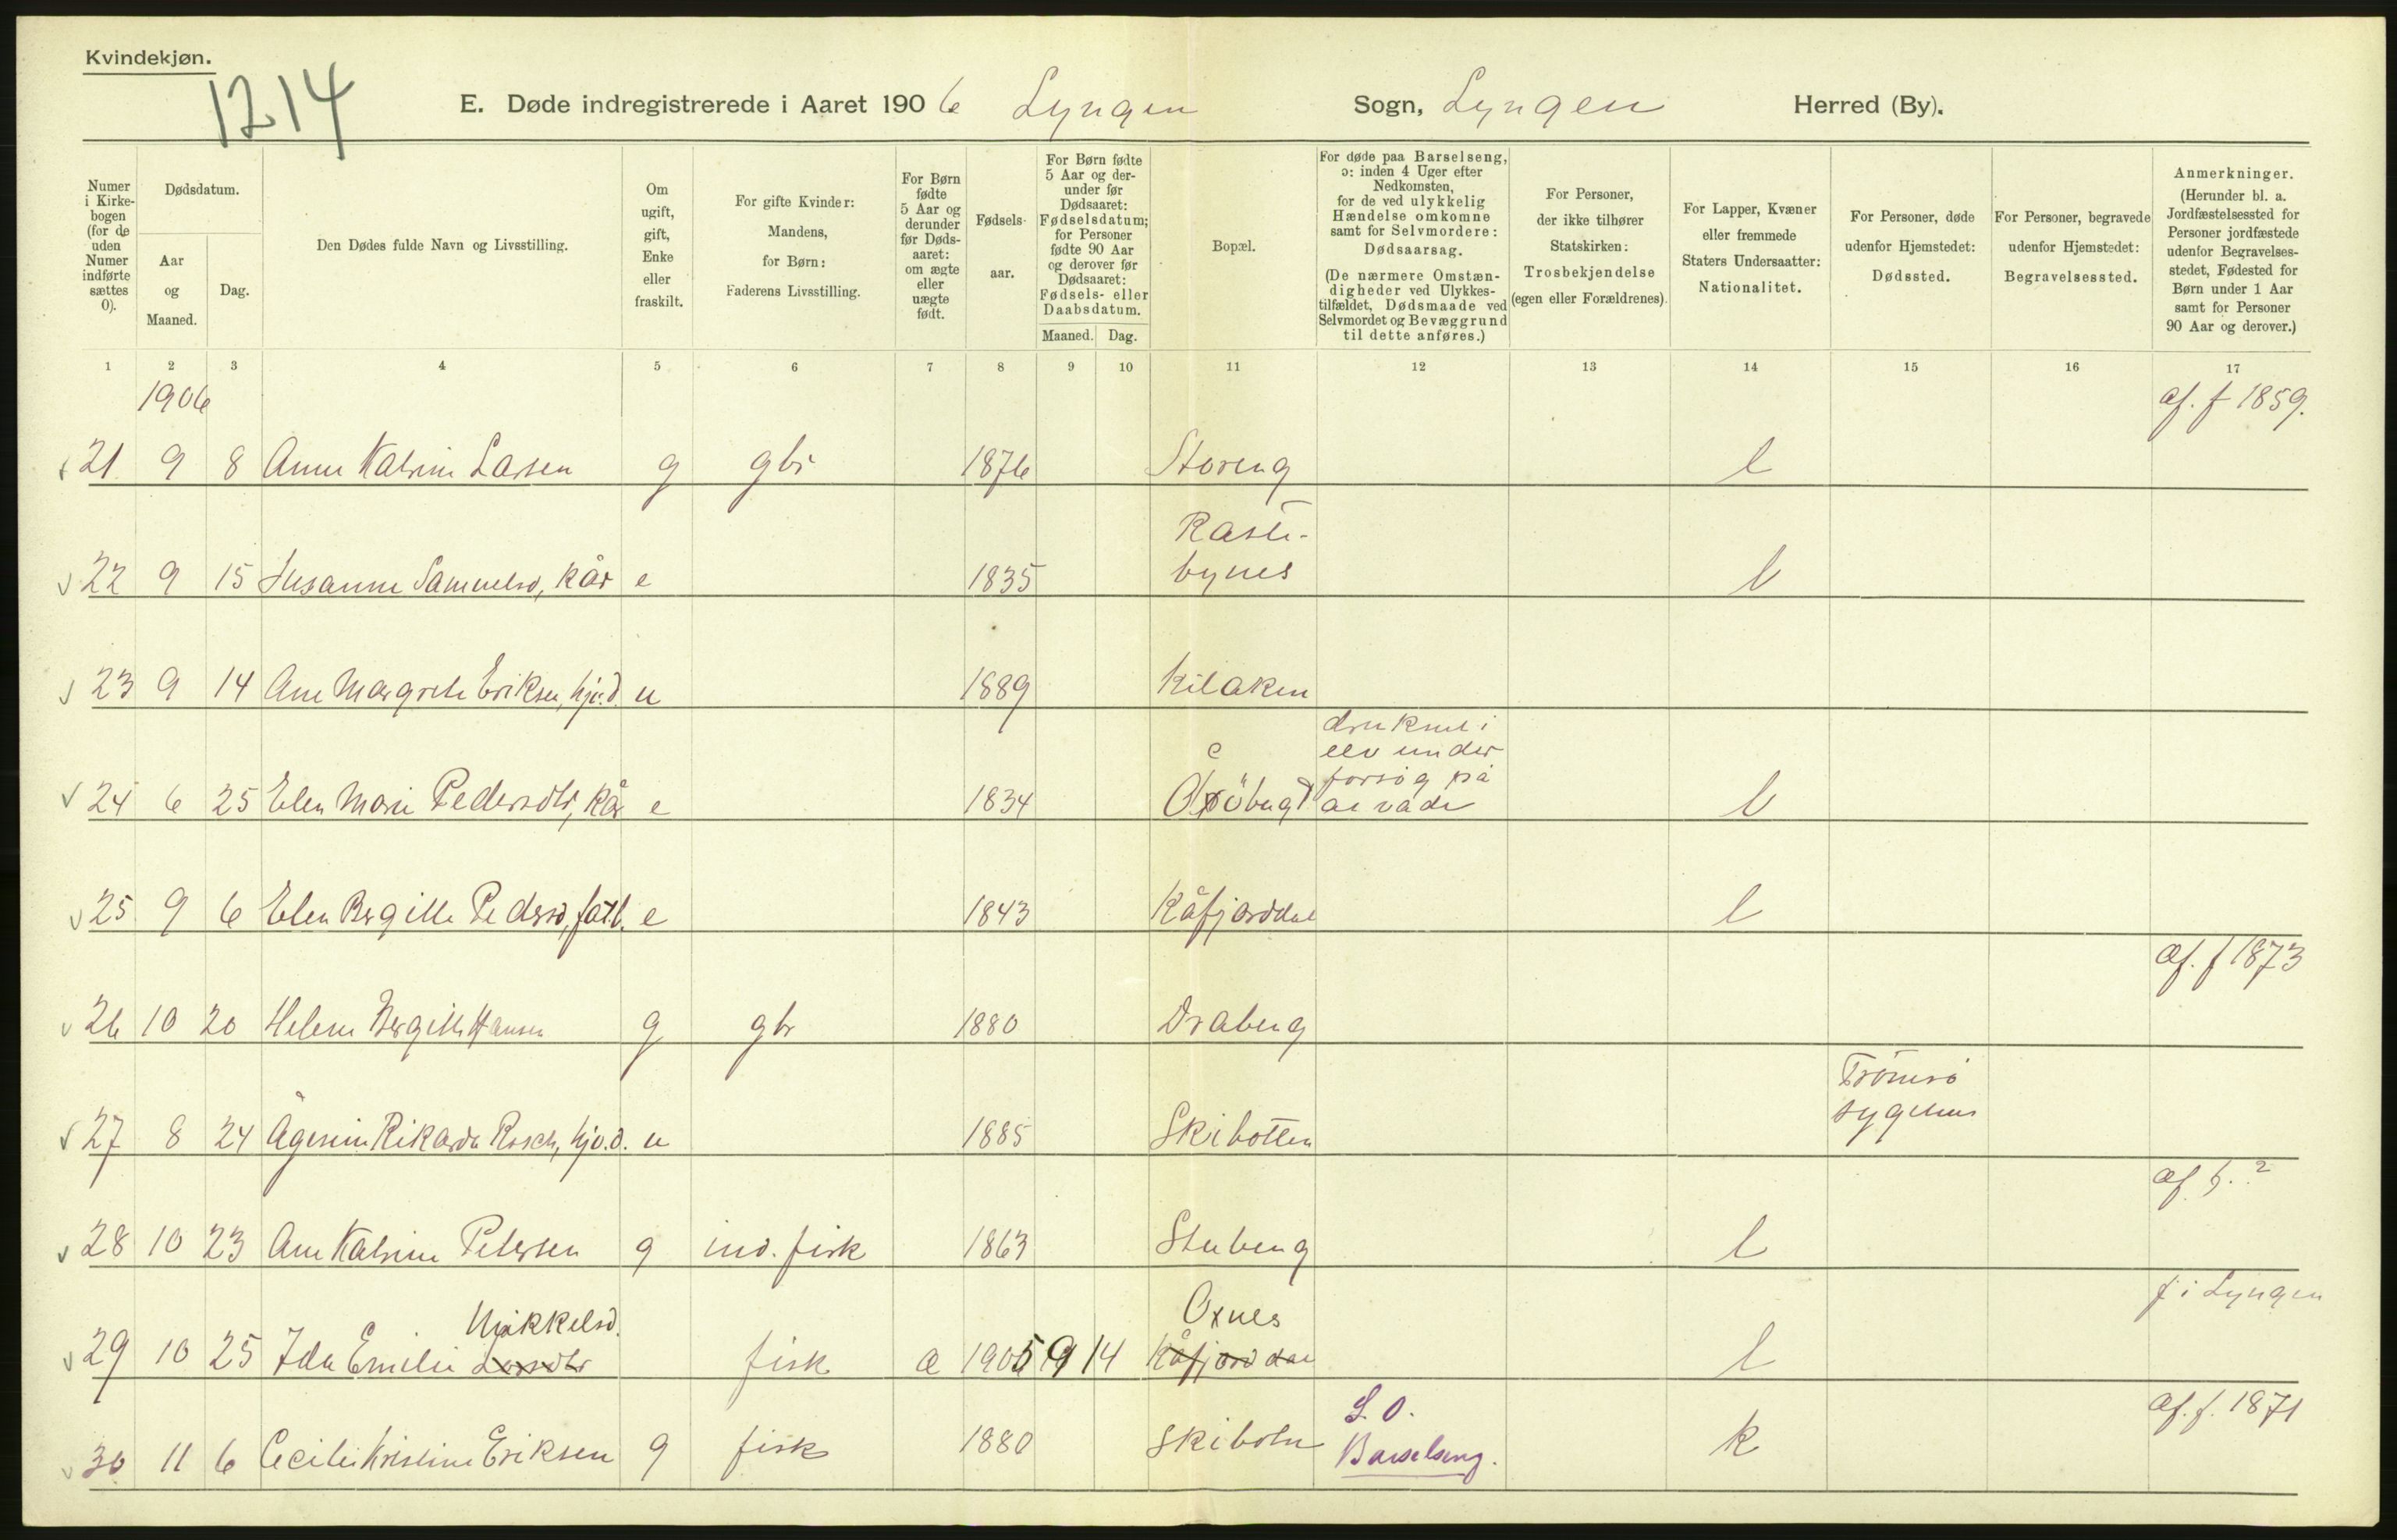 Kvindekjøn.
1214
E. Døde indregistrerede i Aaret 1906 Lyngen Sogn, Lyngen Herred (By).
Numer i Kirkebogen (for de uden Numer indførte sættes 0).
Dødsdatum.
Aar og Maaned.
Dag.
Den Dødes fulde Navn og Livsstilling.
Om ugift, gift, Enke eller fraskilt.
For gifte Kvinder: Mandens, for Børn: Faderens Livsstilling.
For Børn fødte 5 Aar og derunder før Dødsaaret: om ægte eller uægte født.
Fødselsaar.
For Børn fødte 5 Aar og derunder før Dødsaaret: Fødselsdatum; for Personer fødte 90 Aar og derover før Dødsaaret: Fødsels- eller Daabsdatum.
Maaned. Dag.
Bopæl.
For døde paa Barselseng, ɔ: inden 4 Uger efter Nedkomsten, for de ved ulykkelig Hændelse omkomne samt for Selvmordere: Dødsaarsag.
(De nærmere Omstændigheder ved Ulykkestilfældet, Dødsmaade ved Selvmordet og Bevæggrund til dette anføres.)
For Personer, der ikke tilhører Statskirken: Trosbekjendelse (egen eller Forældrenes).
For Lapper, Kvæner eller fremmede Staters Undersaatter: Nationalitet.
For Personer, døde udenfor Hjemstedet: Dødssted.
For Personer, begravede udenfor Hjemstedet: Begravelsessted.
Anmerkninger.
(Herunder bl. a. Jordfæstelsessted for Personer jordfæstede udenfor Begravelsesstedet, Fødested for Børn under 1 Aar samt for Personer 90 Aar og derover.)
1 2 3 4 5 6 7 8 9 10 11 12 13 14 15 16 17
1906 æf. f 1859.
21 9 8 Anne Katrine Larsen g gbr 1876 Storeng l
Raste-
22 9 15 Susanne Samuelsd, kår e 1835 bynes l
23 9 14 Ane Margrete Eriksen, hj.d. u 1889 Kilaken
druknet i
elv under
forsøg på
24 6 25 Elen Marie Pedersdtr, kår e 1834 Oxöbugt at vade l
25 9 6 Elen Bergitte Pedersd, fattl. e 1843 Kåfjorddal l
æf. f 1873
26 10 20 Helene Bergitte Hansen g gbr 1880 Drabeng
Tromsö
sygehus
27 8 24 Ågesine Rikarda Rasch, hjv.d. u 1885 Skibotten
æf b. ?
28 10 23 Ane Katrine Petersen g ind. fisk 1863 Stubeng l
f i Lyngen
Mikkelsd. Oxnes
29 10 25 Ida Emelie Larsdtr fisk æ 1905 9 14 Kåfjorddal l
L. O. æf. f. 1871
30 11 6 Cecilie Kristine Eriksen g fisk 1880 Skibotn Barselseng. k